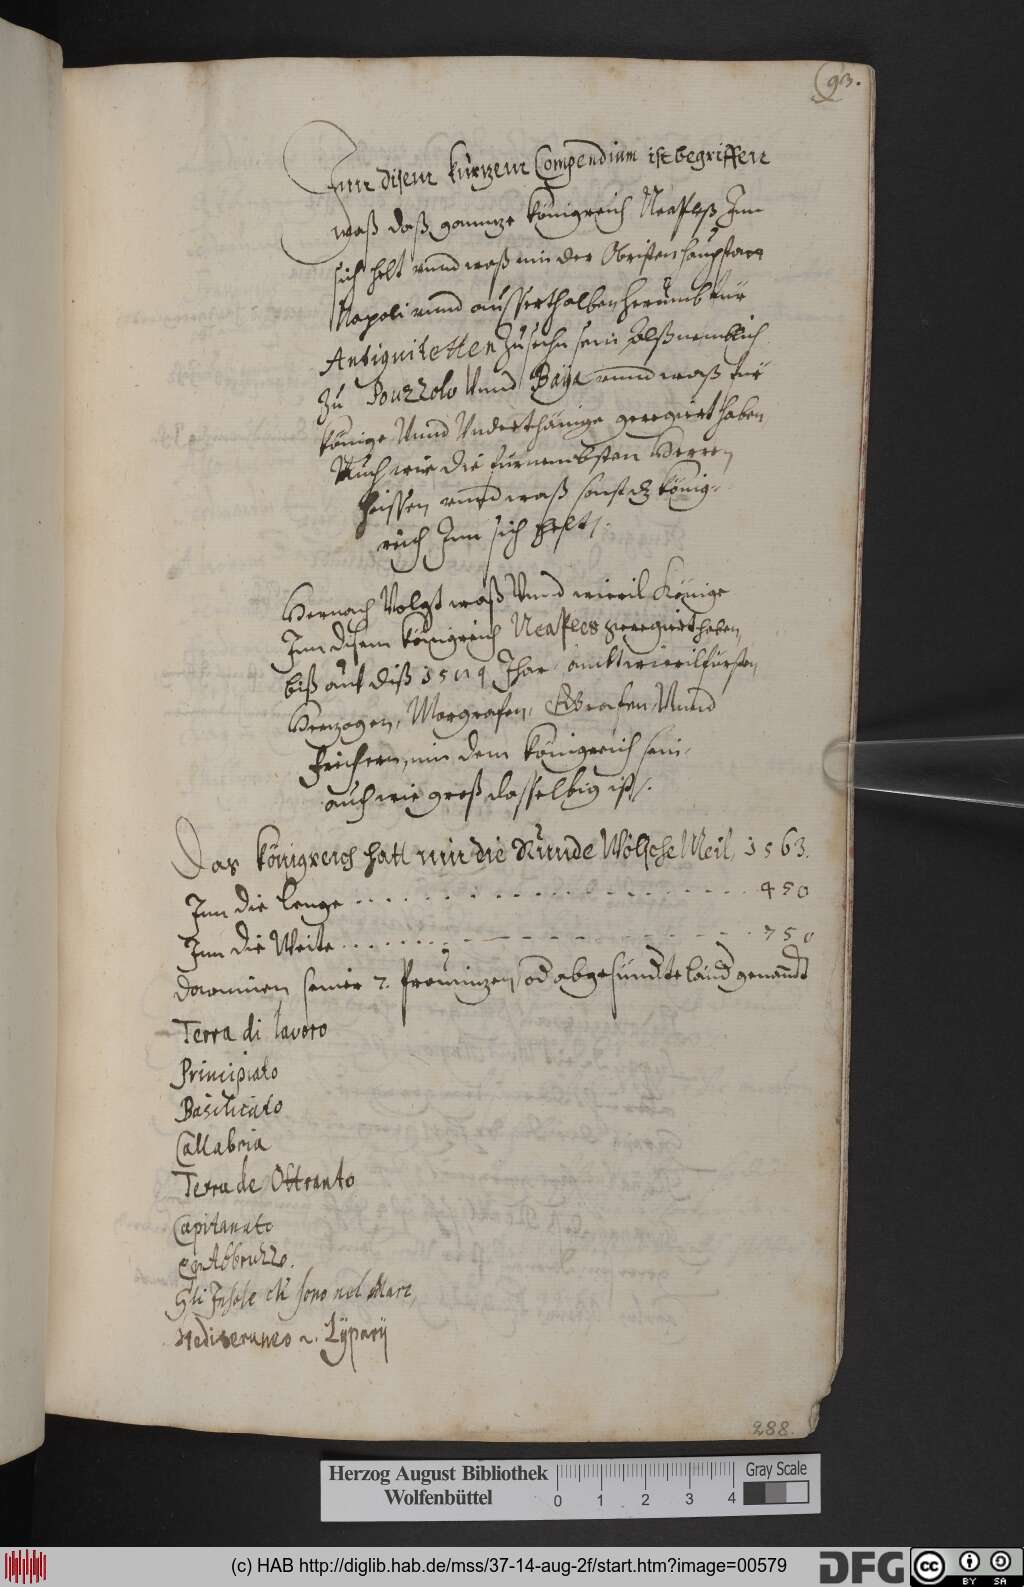 93.
Inn disem kurtzem Compendium ist begriffen
waß daß ganntze Königreich Neapleß Inn
sich helt unnd waß inn der Obristen hauptstatt
Napoli unnd ausserthalben herumb für
Antiquiteten zusehn sein Alß nemblich
zu Pouzzolo Unnd Baÿa unnd waß für
Könige Unnd Underthänige geregiert haben
Auch wie die fürnembsten Herren
heissen unnd waß sonst dz König-
reich Inn sich helt/.
Hernach Volgt waß Unnd wievil Könige
Inn disem Königreich Neaples geregiert haben,
biß auf diß Jhar wievil fürsten,
Herzogen, Margrafen, Graafen, Unnd
Freyherrn, inn dem Königreich sein,
auch wie groß dasselbig ist/.
Das Königreich hatt inn die Runde Wölsche Meil, 1563.
Inn die lenge 450
Inn die Weite 750
Darinnen seinir 7. Prouintzen, od abgesündte länd genandt
Terra di lavoro
Principiato
Basilicato
Callabria
Terra de Ottranto
Capitanato
Abbruzzo.
Gli Insole chi sono nel Mare,
Mediteraneo Lÿparÿ
288.
Herzog August Bibliothek
Wolfenbüttel
0 1 2 3 4
Gray Scale
(c) HAB http://diglib.hab.de/mss/37-14-aug-2f/start.htm?image=00579
DFG
cc BY SA